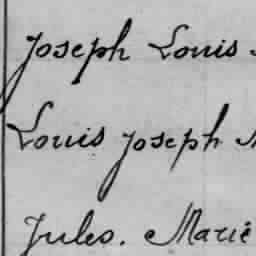 Joseph Louis
Louis Joseph
Jules. Marie